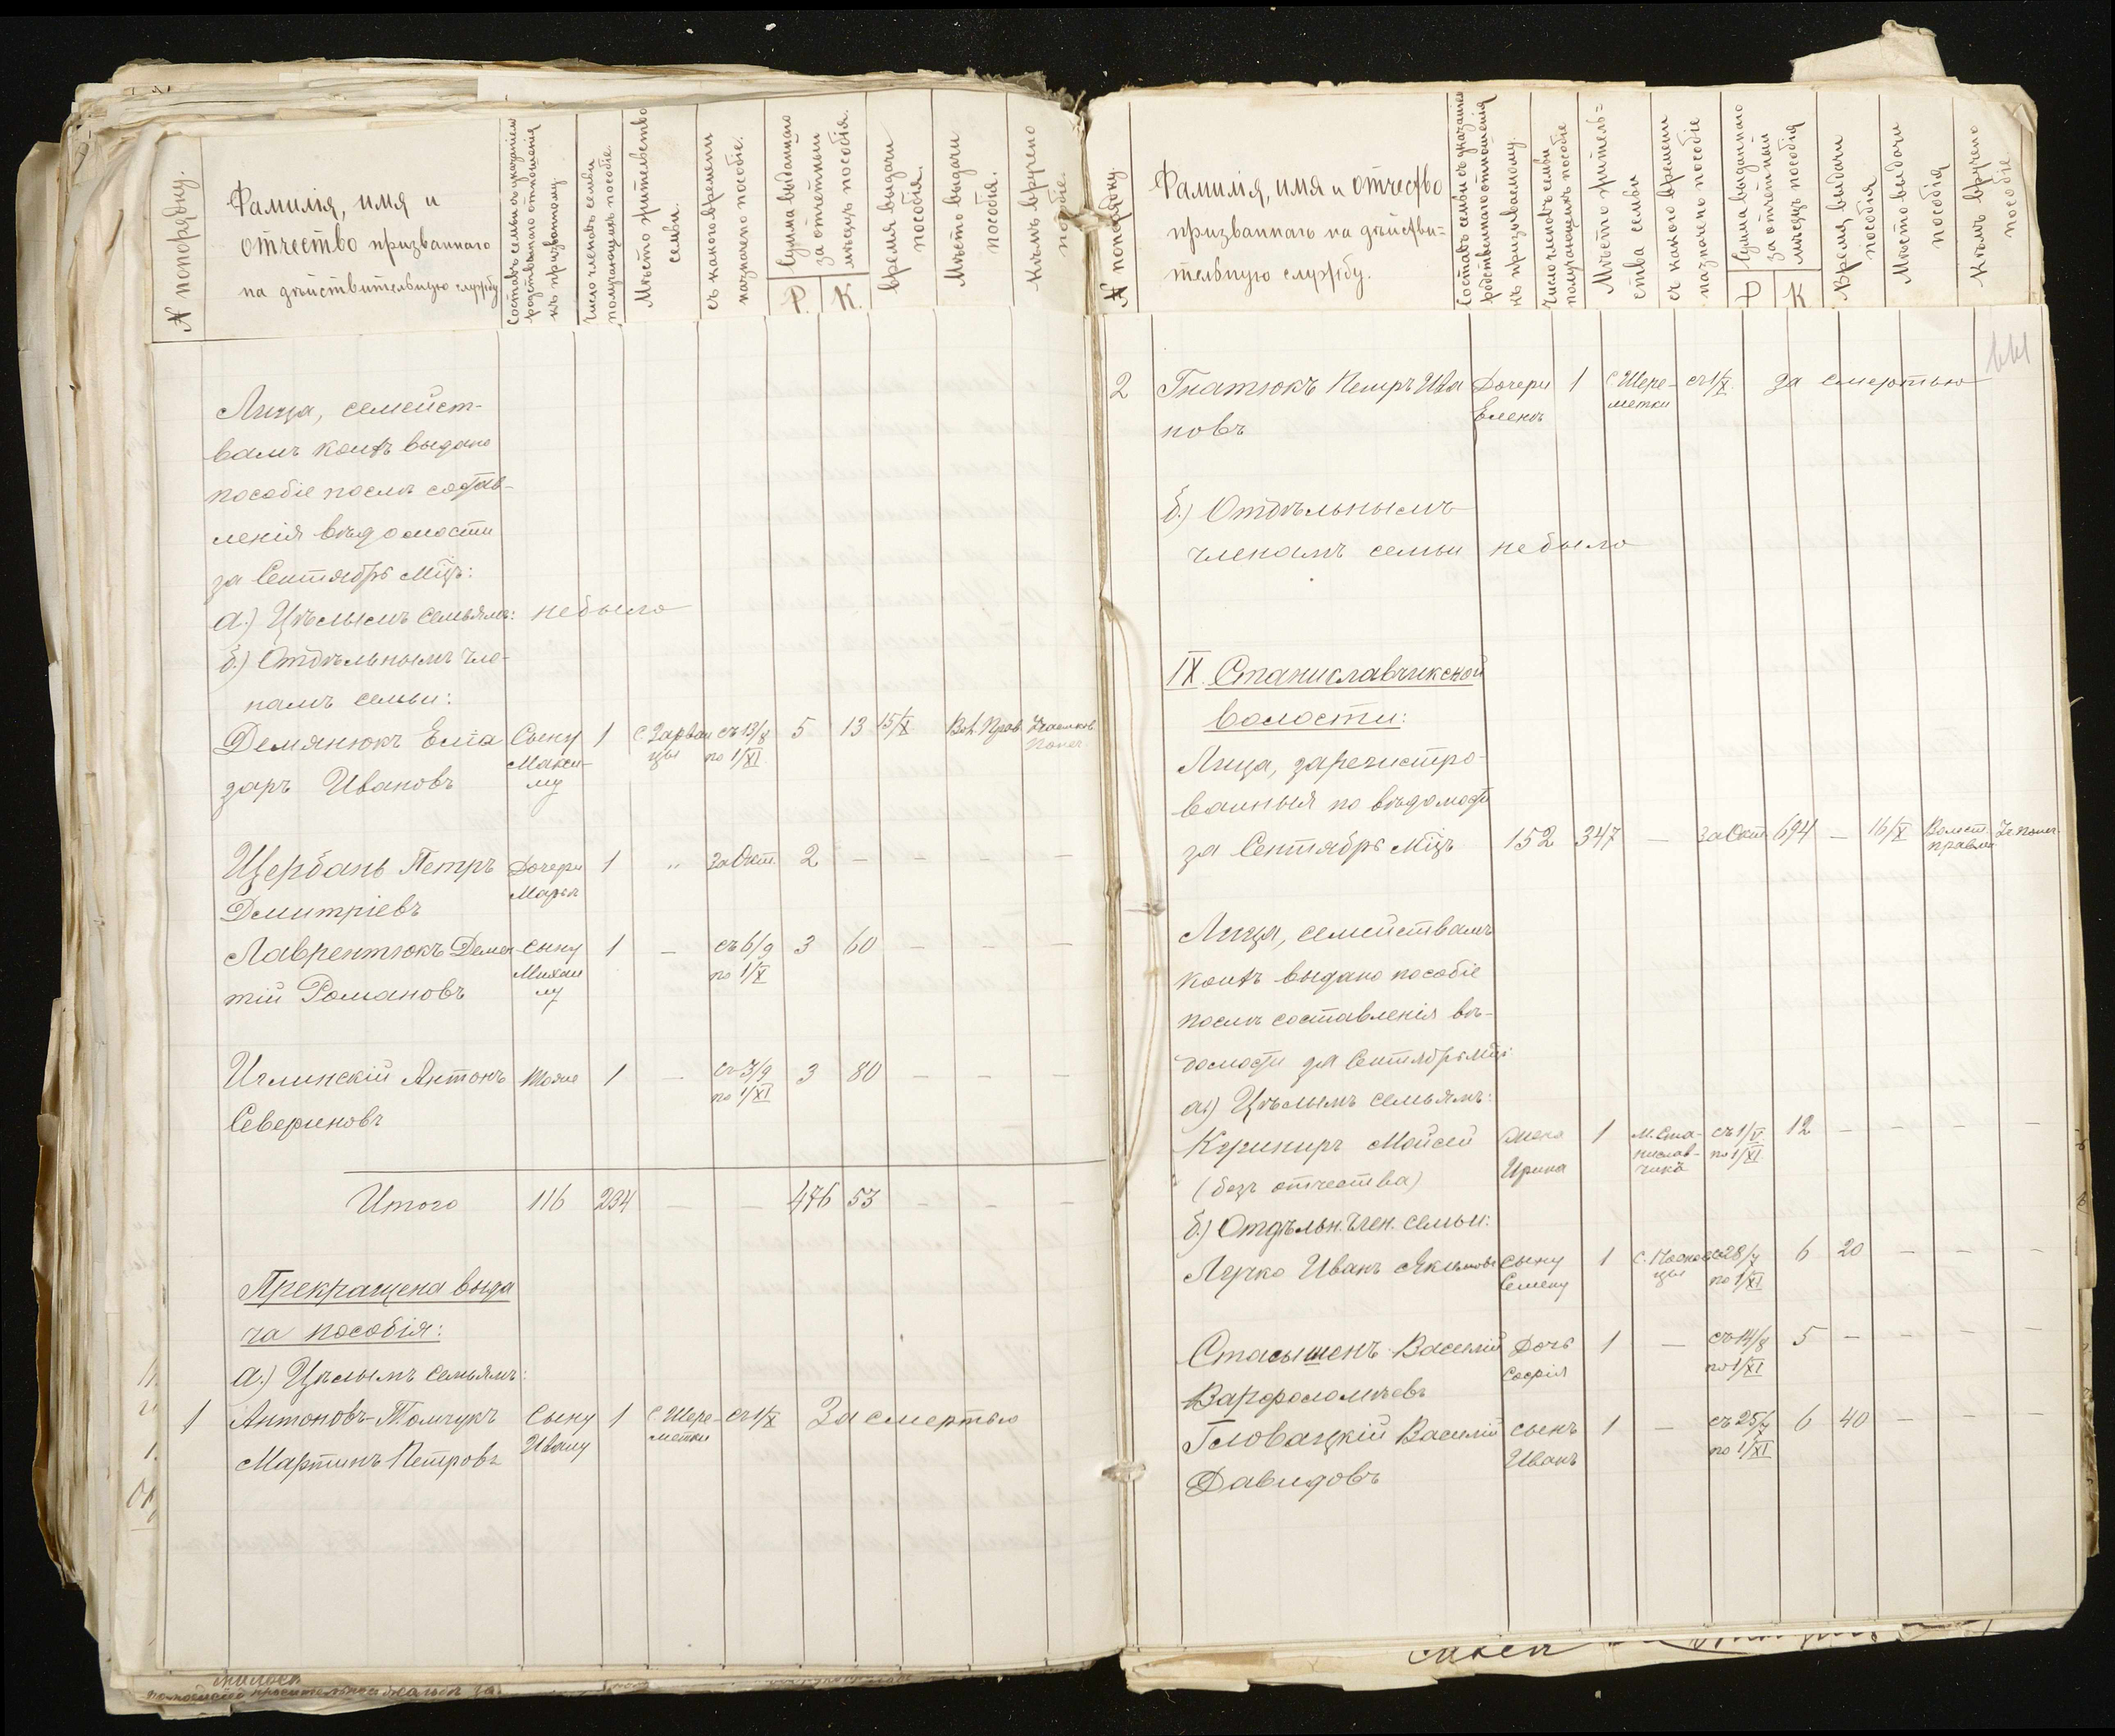 № по порядку.
Фамилія, имя и
отчество призваннаго
на дѣйствительную службу
Составъ семьи съ указаніемъ
родственнаго отношенія
къ призванному.
Число членовъ семьи
получающихъ пособіе.
Мѣсто жительство
семьи.
съ какого времени
назначено пособіе.
Сумма выданнаго
за отчетный
мѣсяцъ пособія.
Р. К.
время выдачи
пособія.
Мѣсто выдачи
пособія.
Кѣмъ вручено
пособіе.
Лица, семейст-
вамъ коихъ выдано
пособіе послѣ состав-
ленія вѣдомости
за Сентябрь Мцъ:
а.) Цѣлымъ семьямъ: небыло
б.) Отдѣльнымъ чле-
намъ семьи:
Демянюкъ Елиа Сыну 1 с. Зарван съ 13/8 5 13 15/X Вол. Прав. Участков.
заръ Ивановъ Макси- цы по 1/XI Попеч.
му
Щербань Петръ Дочери 1 " За Окт. 2 — — — —
Дмитріевъ Марьи
Лаврентюкъ Демен- сыну 1 — съ 6/9 3 60 — — —
тій Романовъ Михаи по 1/X
лу
Иглинскій Антонъ Тоже 1 — съ 3/9 3 80 — — —
Севериновъ по 1/XI
Итого 116 234 — — 476 53 — — —
Прекращена выда
ча пособія:
а.) Цѣлымъ семьямъ:
1 Антоновъ-Томчукъ Сыну 1 с. Шере- съ 1/X За смертью
Мартинъ Петровъ Ивану метки
№ по порядку
Фамилія, имя и отчество
призваннаго на дѣйстви=
тельную службу.
Составъ семьи съ указаніемъ
родственнаго отношенія
къ призываемому.
Число членовъ семьи
получающихъ пособіе
Мѣсто житель=
ства семьи
съ какого времени
назначено пособіе
Сумма выданнаго
за отчетный
мѣсяцъ пособія
Р К
Время выдачи
пособія
Мѣсто выдачи
пособія
Кѣмъ вручено
пособіе
2 Гнатюкъ Петръ Ива Дочери 1 с. Шере- съ 1/X За смертью
новъ Еленѣ метки
б.) Отдѣльнымъ
членамъ семьи небыло
IX. Станиславчикской
волости:
Лица, зарегистро-
ванныя по вѣдомости
за Сентябрь Мцъ 152 347 — за Окт. 694 — 16/X Волост. Уч. Попеч.
правл.
Лица, семействамъ
коихъ выдано пособіе
послѣ составленія вѣ-
домости за Сентябрь мцъ:
а) Цѣлымъ семьямъ:
Кушниръ Мойсей жена 1 м. Ста- съ 1/V 12 — — — —
(безъ отчества) Ирина нислав- по 1/XI
чикъ
б.) Отдѣльн. член. семьи:
Лучко Иванъ Якимовъ сыну 1 съ 28/7 6 20 — — —
Семену цы по 1/XI
Стасышенъ Василій Дочь 1 — съ 14/8 5 — — — —
Варфоломѣевъ Софія по 1/XI
Головацкій Василій сынъ 1 — съ 25/7 6 40 — — —
Давидовъ Иванъ по 1/XI